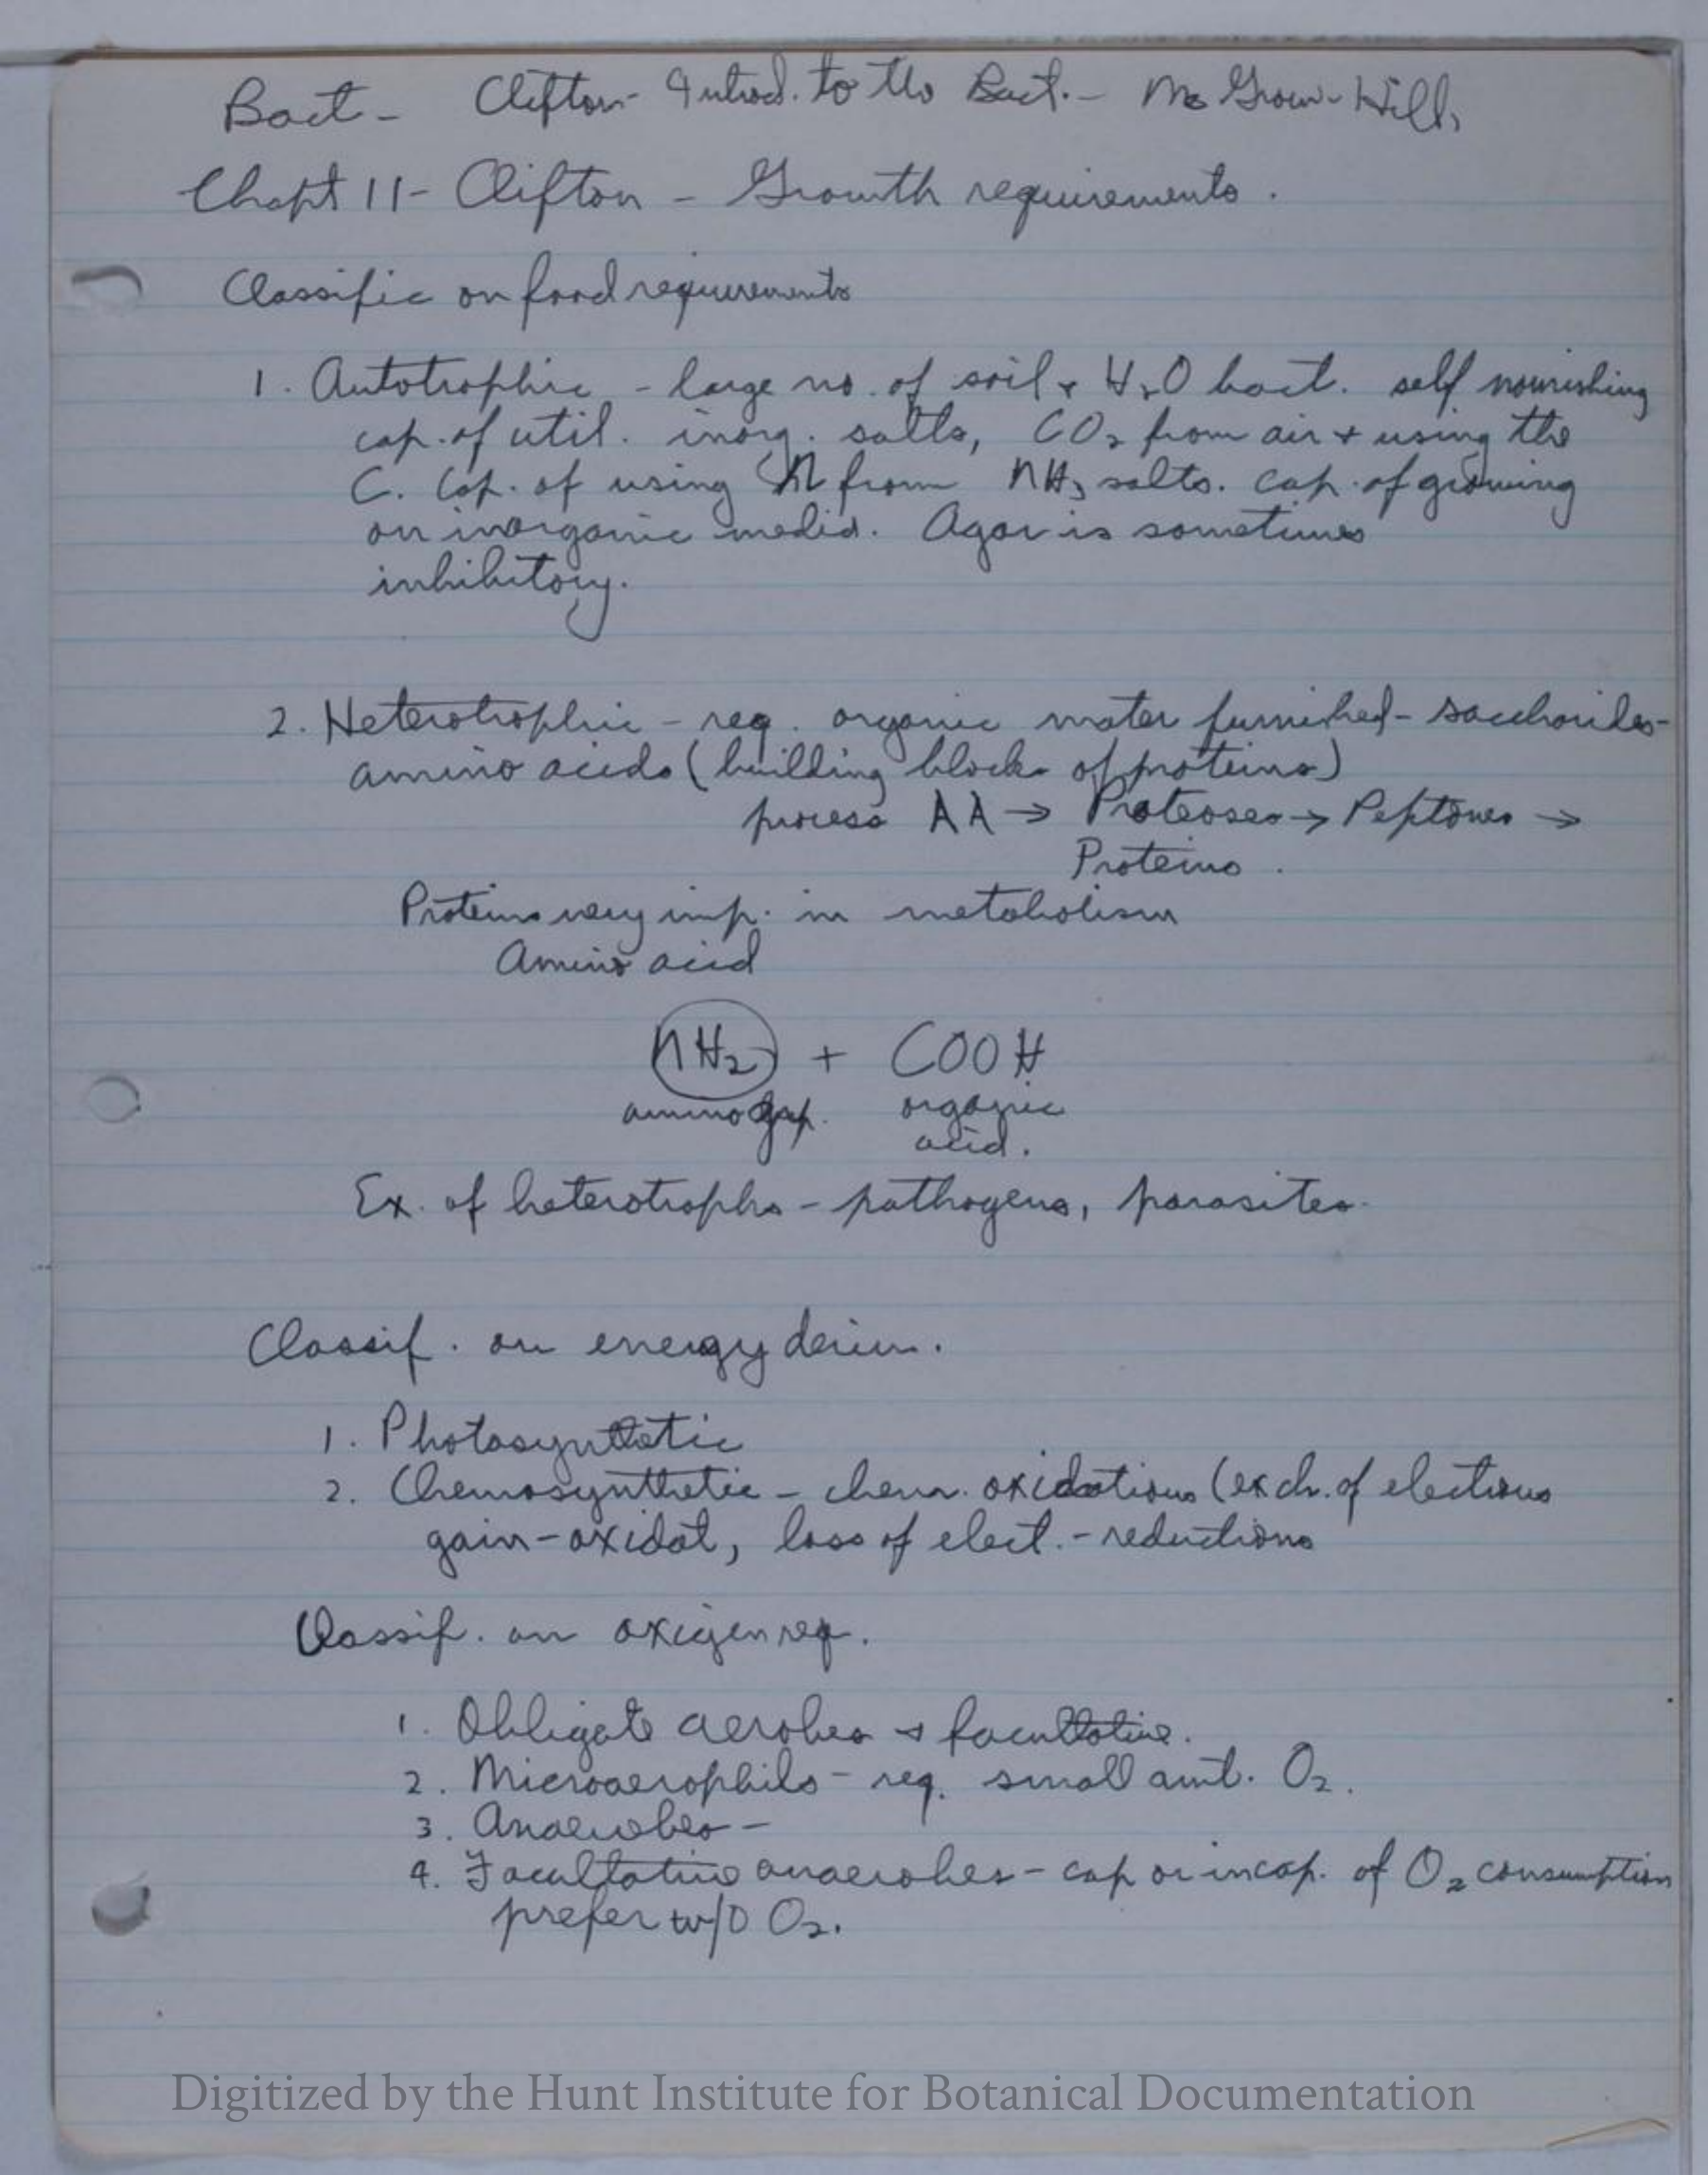 Bact - Clifton - Introd. to the Bact. - McGraw-Hill,
Chapt 11 - Clifton - Growth requirements.
Classific on food requirements
1. Autotrophic - large no. of soil & H2O bact. self nourishing
cap. of util. inorg. salts, CO2 from air + using the
C. Cap. of using N from NH3 salts. Cap. of growing
on inorganic media. Agar is sometimes
inhibitory.
2. Heterotrophic - req. organic mater furnished - saccharides -
amino acids (building blocks of proteins)
process AA → Proteoses → Peptones →
Proteins.
Proteins very imp. in metabolism
Amino acid
NH2 + COOH
amino grp. organic
acid.
Ex. of heterotrophs - pathogens, parasites.
Classif. on energy deriv.
1. Photosynthetic
2. Chemosynthetic - chem. oxidations (exch. of electrons
gain - oxidat, loss of elect. - reductions
Classif. on oxigen req.
1. Obligate aerobes & facultative.
2. Microaerophils - req. small amt. O2.
3. Anaerobes -
4. Facultative anaerobes - cap or incap. of O2 consumption
prefer w/o O2.
Digitized by the Hunt Institute for Botanical Documentation